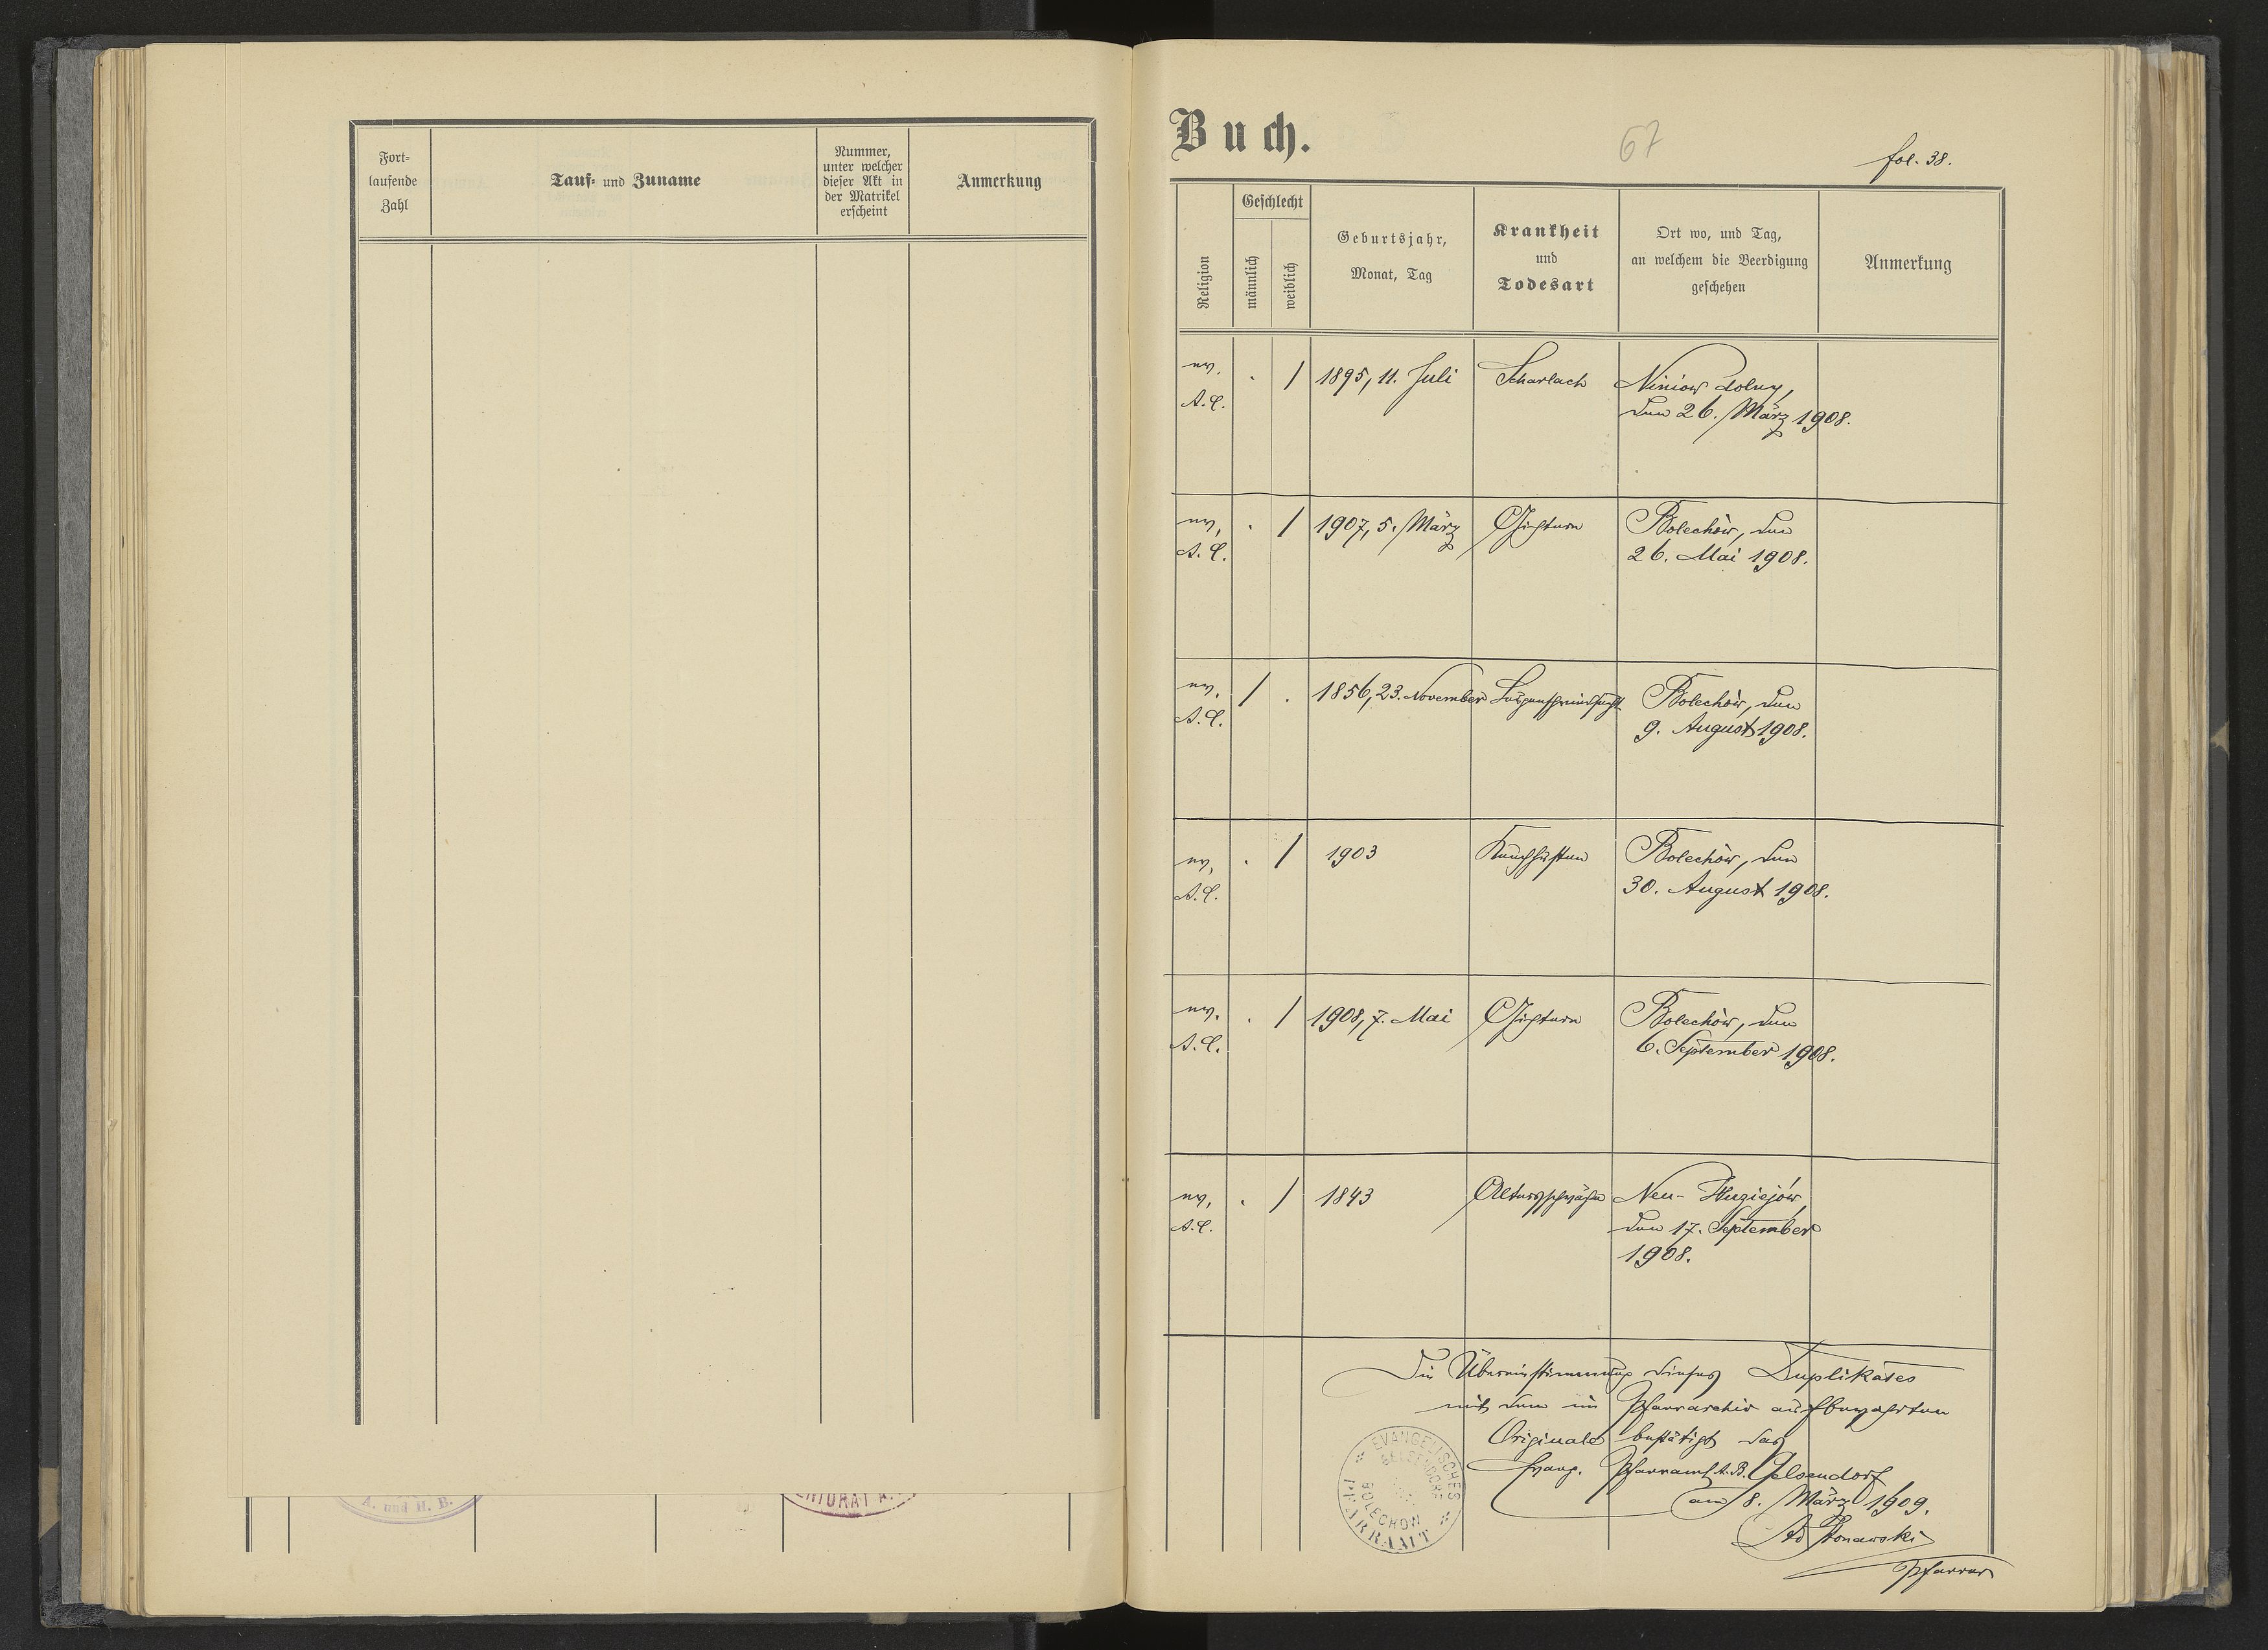 Fort-
laufende
Zahl
Tauf- und Zuname
Nummer,
unter welcher
dieser Akt in
der Matrikel
erscheint
Anmerkung
A. und H. B.
Buch.
67
fol. 38.
Religion
Geschlecht
männlich
weiblich
Geburtsjahr,
Monat, Tag
Krankheit
und
Todesart
Ort wo, und Tag,
an welchem die Beerdigung
geschehen
Anmerkung
ev. . / 1895, 11. Juli Scharlach Niniow dolny,
A.C. den 26. März 1908.
ev. . / 1907, 5. März Bolechów, den
A.C. 26. Mai 1908.
ev. / . 1856, 23. November Lungenschwindsucht Bolechów, den
A.C. 9. August 1908.
ev. . / 1903 Keuchhusten Bolechów, den
A.C. 30. August 1908.
ev. . / 1908, 7. Mai Bolechów, den
A.C. 6. September 1908.
ev. . / 1843 Altersschwäche Neu-
A.C. den 17. September
1908.
Die Übereinstimmung dieses Duplikates
mit dem im Pfarrarchiv aufbewahrten
Originale bestätigt das
Evang. Pfarramt A.B. Gelsendorf
am 8. März 1909.
Pfarrer
EVANGELISCHES
PFARRAMT
GELSENDORF
BOLECHOW